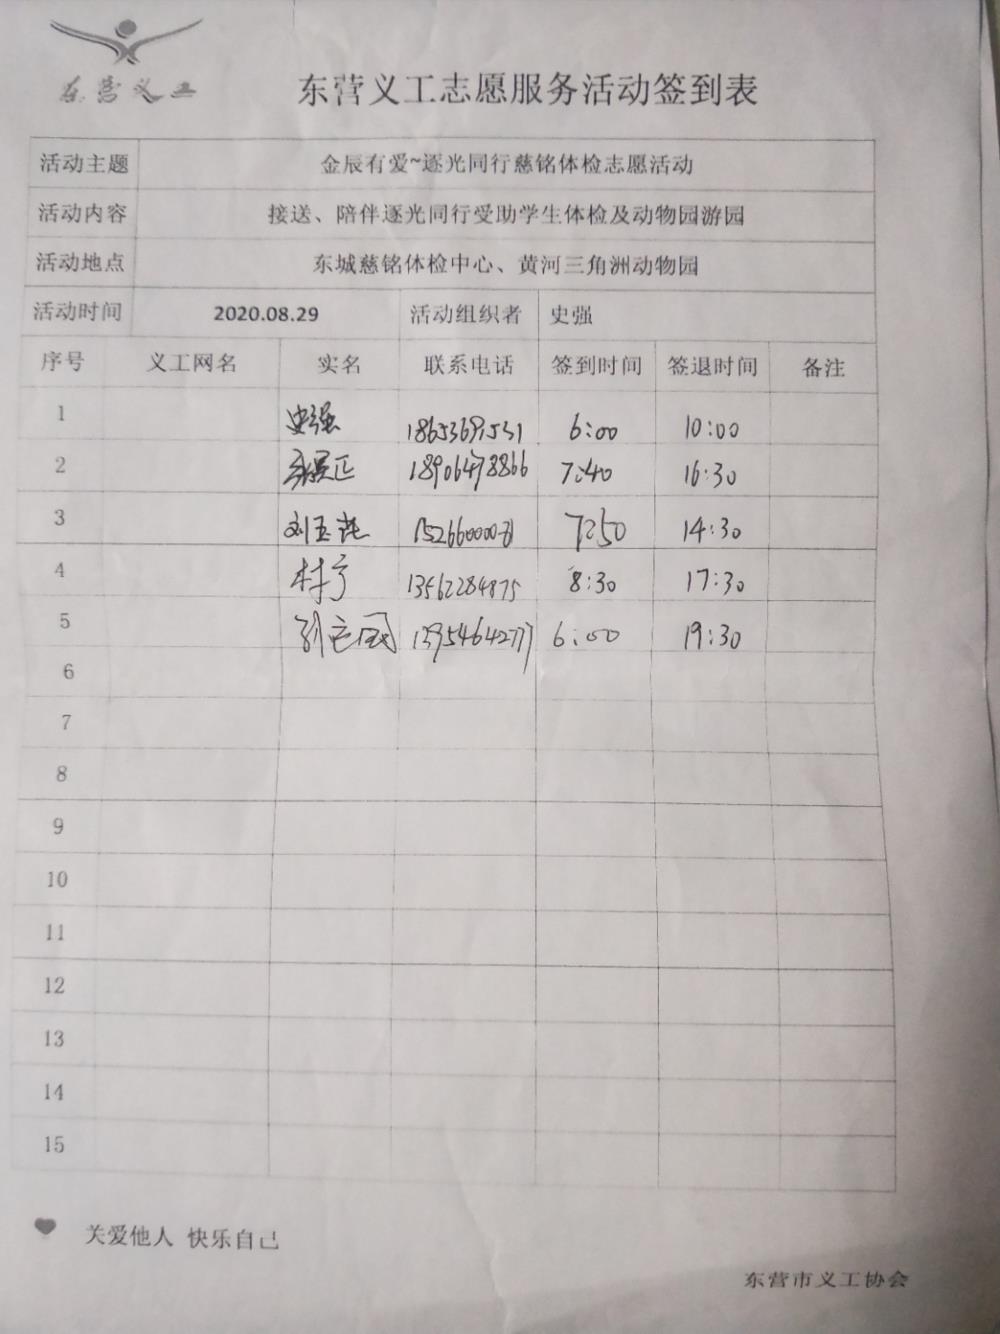 东营义工
东营义工志愿服务活动签到表
活动主题 金辰有爱~逐光同行慈铭体检志愿活动
活动内容 接送、陪伴逐光同行受助学生体检及动物园游园
活动地点 东城慈铭体检中心、黄河三角洲动物园
活动时间 2020.08.29 活动组织者 史强
序号 义工网名 实名 联系电话 签到时间 签退时间 备注
1 史强 18653691531 6:00 10:00
2 18906478866 7:40 16:30
3 刘玉 7:50 14:30
4 13562284875 8:30 17:30
5 13954642777 6:00 19:30
6
7
8
9
10
11
12
13
14
15
关爱他人 快乐自己
东营市义工协会